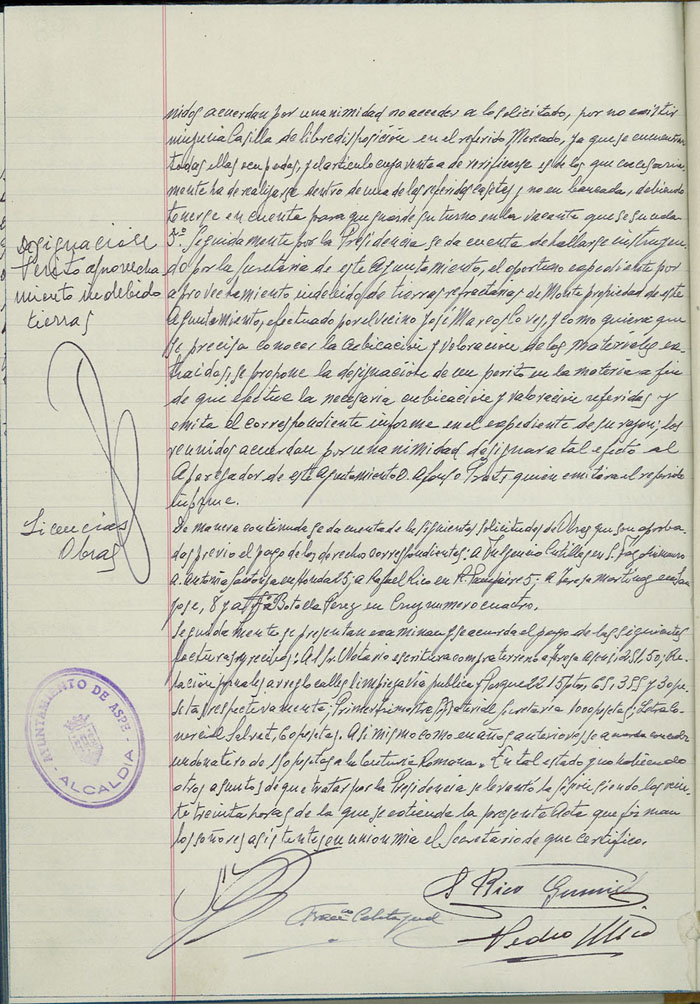 nidos acuerdan por unanimidad no acceder a lo solicitado, por no existir
ninguna Casilla de libre disposición en el referido Mercado, ya que se encuentran
todas ellas ocupadas, y el artículo cuya venta a de verificarse es de los que necesaria
mente ha de realizarse dentro de una de las referidas casetas y no en bancada, debiendo
tenerse en cuenta para que guarde su turno en la vacante que
Designación
Perito aprovecha
miento indebido
tierras
3º. Seguidamente por la Presidencia se da cuenta de hallarse instruyen
do por la Secretaria de este Ayuntamiento, el oportuno expediente por
aprovechamiento indebido de tierras refractarias de Monte propiedad de este
Ayuntamiento, efectuado por el vecino José Marcos y como quiera que
se precisa conocer la cubicación y valoración de los materiales ex-
traidos, se propone la designación de un perito en la materia a fin
de que efectue la necesaria cubicación y valoración referidas y
emita el correspondiente informe en el expediente de su razón; los
reunidos acuerdan por unanimidad designar a tal efecto al
Aparejador de este Ayuntamiento D. Alfonso quien emitirá el referido
informe.
Licencias
Obras
De manera continuada se da cuenta de la siguientes solicitudes de Obras que son aproba-
das previo el pago de los derechos correspondientes: A Fulgencio Cutillas en S.
a Antonia en Honda 25; a Rafael Rico en 5; A Teresa Martinez en San
Jose, 8 y a Botella Perez en Cruz numero cuatro.
Seguidamente se presentan examinan y se acuerda el pago de las siguientes
facturas y recibos: Al Sr. Notario escritura compra terreno a Teresa 251'50; Re-
lación jornales arreglo calles limpieza via publica y Parque 2215 ptas, 65, 355 y 30 pe-
setas respectivamente; Primer trimestre Material Secretaria 1000 pesetas;
Salvat, 60 pesetas. Asi mismo como en años anteriores se acuerda conceder
un donativo de 150 pesetas a la Centuria Romana. En tal estado y no habiendo
otros asuntos de que tratar por la Presidencia se levantó la Sesión siendo las vein-
te treinta horas de la que se extiende la presente Acta que firman
los señores asistentes en union mia el Secretario de que certifico.
AYUNTAMIENTO DE ASPE
- ALCALDIA -
Franco Calatayud
Rico
Pedro